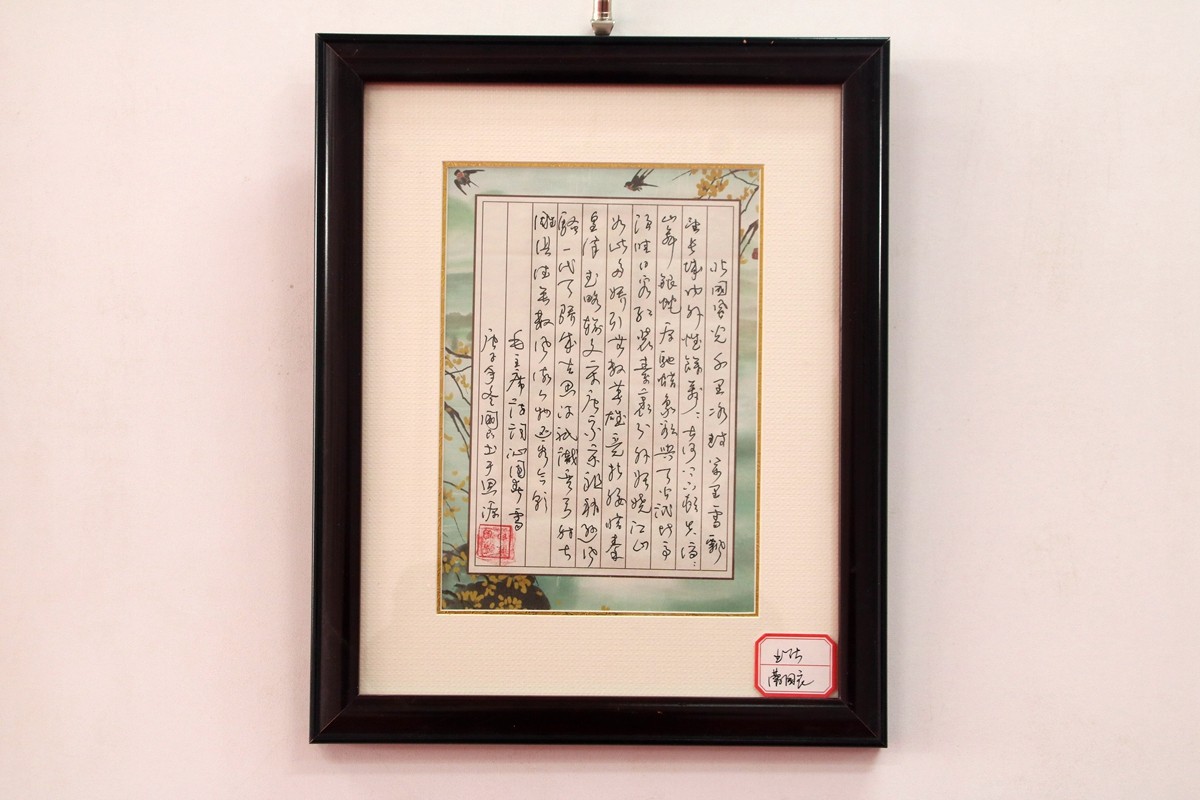 北国風光千里冰封萬里雪飘
望長城内外惟餘莽〻大河上下頓失滔〻
山舞銀蛇原馳蜡象欲與天公試比高
须晴日看红装素裹分外妖娆江山
如此多娇引無数英雄竞折腰惜秦
皇漢武略输文采唐宗宋祖稍逊風
騷一代天骄成吉思汗只識弯弓射大
雕俱往矣数風流人物还看今朝
毛主席诗词沁園春雪
庚子年冬國书于思源
书法
国